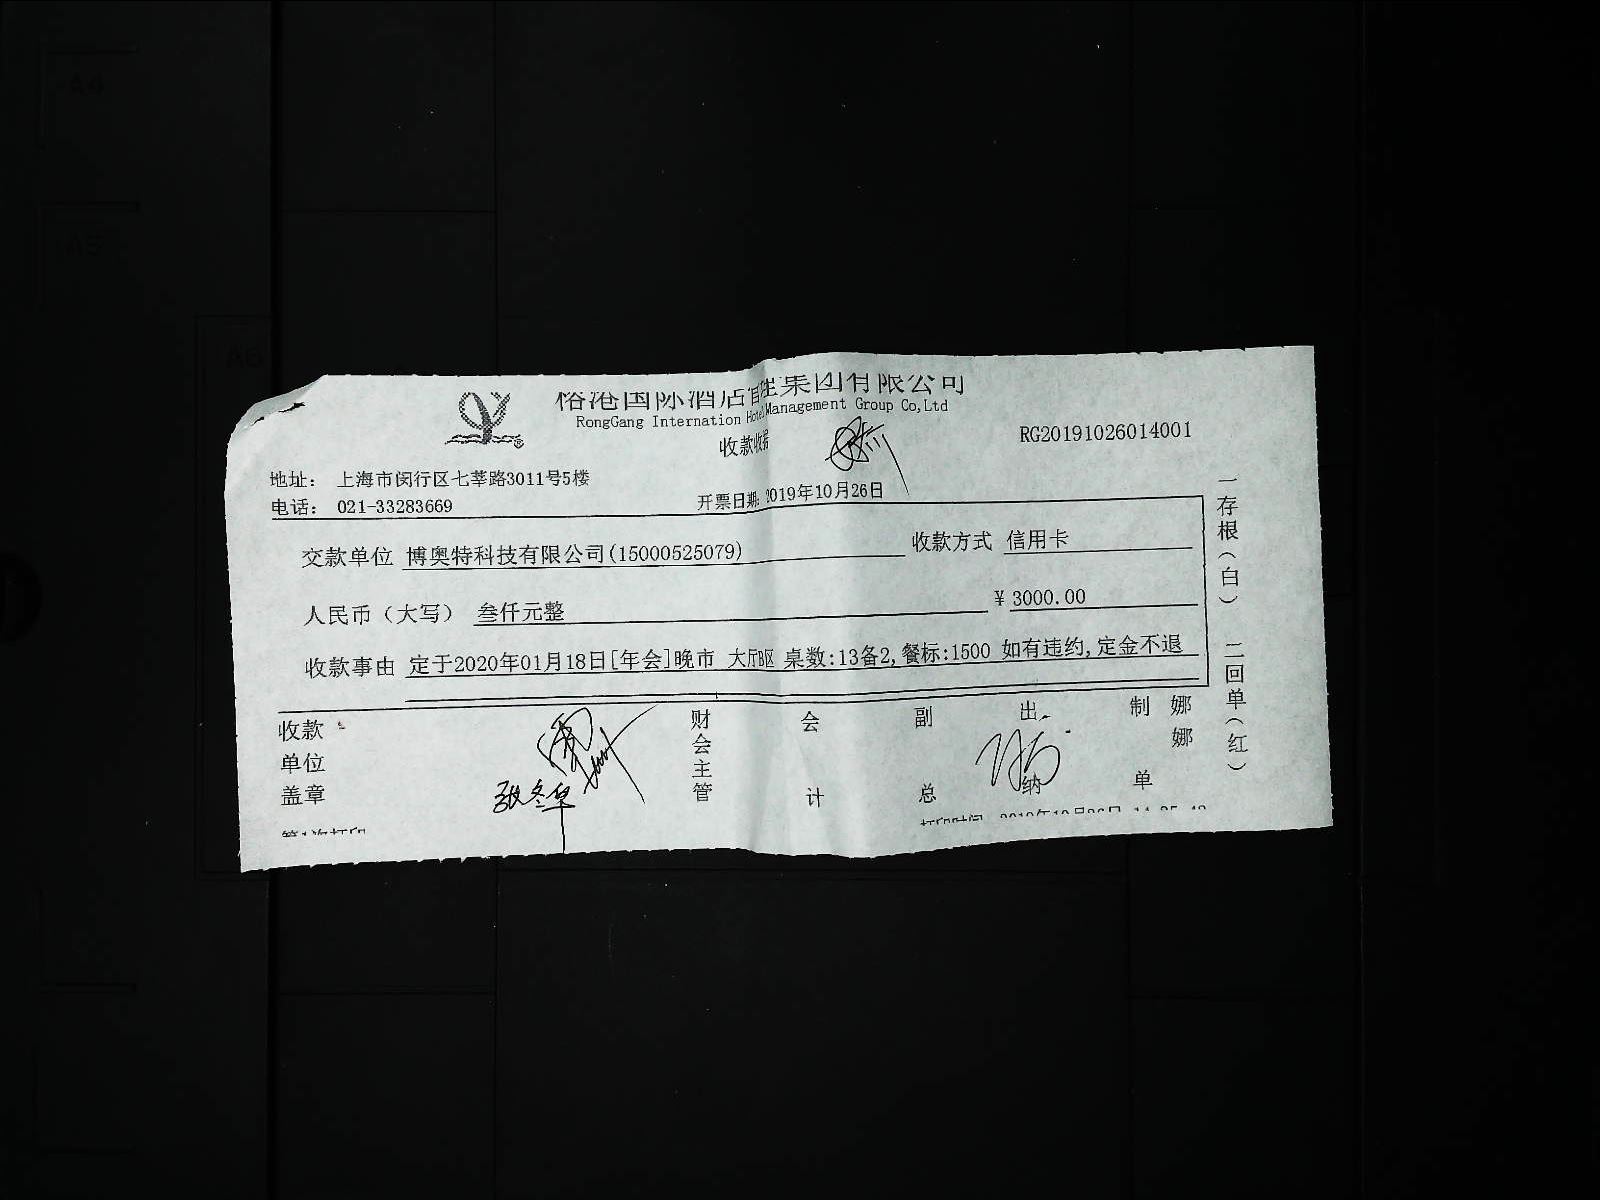 榕港国际酒店管理集团有限公司
RongGang Internation Hotel Management Group Co,Ltd
收款收据
RG20191026014001
地址： 上海市闵行区七莘路3011号5楼
电话： 021-33283669
开票日期：2019年10月26日
交款单位 博奥特科技有限公司(15000525079)
收款方式 信用卡
人民币（大写） 叁仟元整
¥ 3000.00
收款事由 定于2020年01月18日[年会]晚市 大厅B区 桌数:13备2,餐标:1500 如有违约,定金不退
收款单位盖章
张冬华
财会主管
会计
副总
出纳
制单
娜娜
第1次打印
打印时间
一存根（白）
二回单（红）
A4
A5
A6